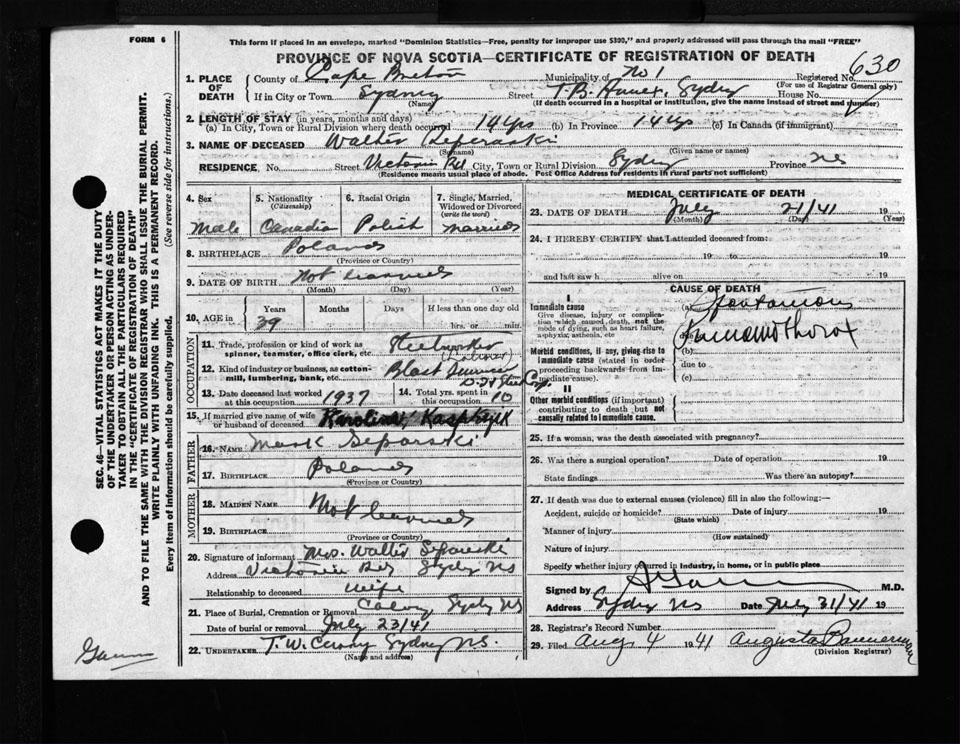 FORM 6
This form if placed in an envelope, marked "Dominion Statistics—Free, penalty for improper use $300," and properly addressed will pass through the mail "FREE"
PROVINCE OF NOVA SCOTIA—CERTIFICATE OF REGISTRATION OF DEATH
630
1. PLACE OF DEATH County of Cape Breton Municipality of No 1 Registered No.
(For use of Registrar General only)
If in City or Town Sydney Street T.B. Annex, Sydney House No.
(Name) (If death occurred in a hospital or institution, give the name instead of street and number)
2. LENGTH OF STAY (in years, months and days)
(a) In City, Town or Rural Division where death occurred 14 yrs (b) In Province 14 yrs (c) In Canada (if immigrant)
3. NAME OF DECEASED Walter
(Surname) (Given name or names)
RESIDENCE, No. Street Victoria Rd City, Town or Rural Division Sydney Province NS
(Residence means usual place of abode. Post Office Address for residents in rural parts not sufficient)
4. Sex 5. Nationality (Citizenship) 6. Racial Origin 7. Single, Married, Widowed or Divorced (write the word)
Male Canadian Polish Married
8. BIRTHPLACE Poland
(Province or Country)
9. DATE OF BIRTH Not learned
(Month) (Day) (Year)
10. AGE in Years Months Days If less than one day old
39 hrs. or min.
OCCUPATION
11. Trade, profession or kind of work as spinner, teamster, office clerk, etc. Steelworker
(Laborer)
12. Kind of industry or business, as cotton-mill, lumbering, bank, etc. Blast Furnace
13. Date deceased last worked at this occupation 1937 14. Total yrs. spent in this occupation 10
15. If married give name of wife or husband of deceased
FATHER
16. NAME
17. BIRTHPLACE Poland
(Province or Country)
MOTHER
18. MAIDEN NAME Not learned
19. BIRTHPLACE
(Province or Country)
20. Signature of informant Mrs. Walter
Address Victoria Rd Sydney NS
Relationship to deceased Wife
21. Place of Burial, Cremation or Removal Calvary Sydney NS
Date of burial or removal July 23/41
22. UNDERTAKER T. W. Sydney N.S.
(Name and address)
MEDICAL CERTIFICATE OF DEATH
23. DATE OF DEATH July 21/41 19
(Month) (Day) (Year)
24. I HEREBY CERTIFY that I attended deceased from:
19 to 19
and last saw h alive on 19
CAUSE OF DEATH
I
Immediate cause
Give disease, injury or complication which caused death, not the mode of dying, such as heart failure, asphyxia, asthenia, etc
(a) Spontaneous
Pneumothorax
Morbid conditions, if any, giving rise to immediate cause (stated in order proceeding backwards from immediate cause).
(b)
due to
(c)
II
Other morbid conditions (if important) contributing to death but not causally related to immediate cause.
25. If a woman, was the death associated with pregnancy?
26. Was there a surgical operation? Date of operation 19
State findings Was there an autopsy?
27. If death was due to external causes (violence) fill in also the following:—
Accident, suicide or homicide? Date of injury 19
(State which)
Manner of injury
(How sustained)
Nature of injury
Specify whether injury occurred in industry, in home, or in public place
Signed by M.D.
Address Sydney NS Date July 31/41 19
28. Registrar's Record Number
29. Filed Aug 4 1941 Augusta
(Division Registrar)
SEC. 46—VITAL STATISTICS ACT MAKES IT THE DUTY OF THE UNDERTAKER OR PERSON ACTING AS UNDERTAKER TO OBTAIN ALL THE PARTICULARS REQUIRED IN THE "CERTIFICATE OF REGISTRATION OF DEATH" AND TO FILE THE SAME WITH THE DIVISION REGISTRAR WHO SHALL ISSUE THE BURIAL PERMIT.
WRITE PLAINLY WITH UNFADING INK. THIS IS A PERMANENT RECORD.
Every item of information should be carefully supplied. (See reverse side for instructions.)